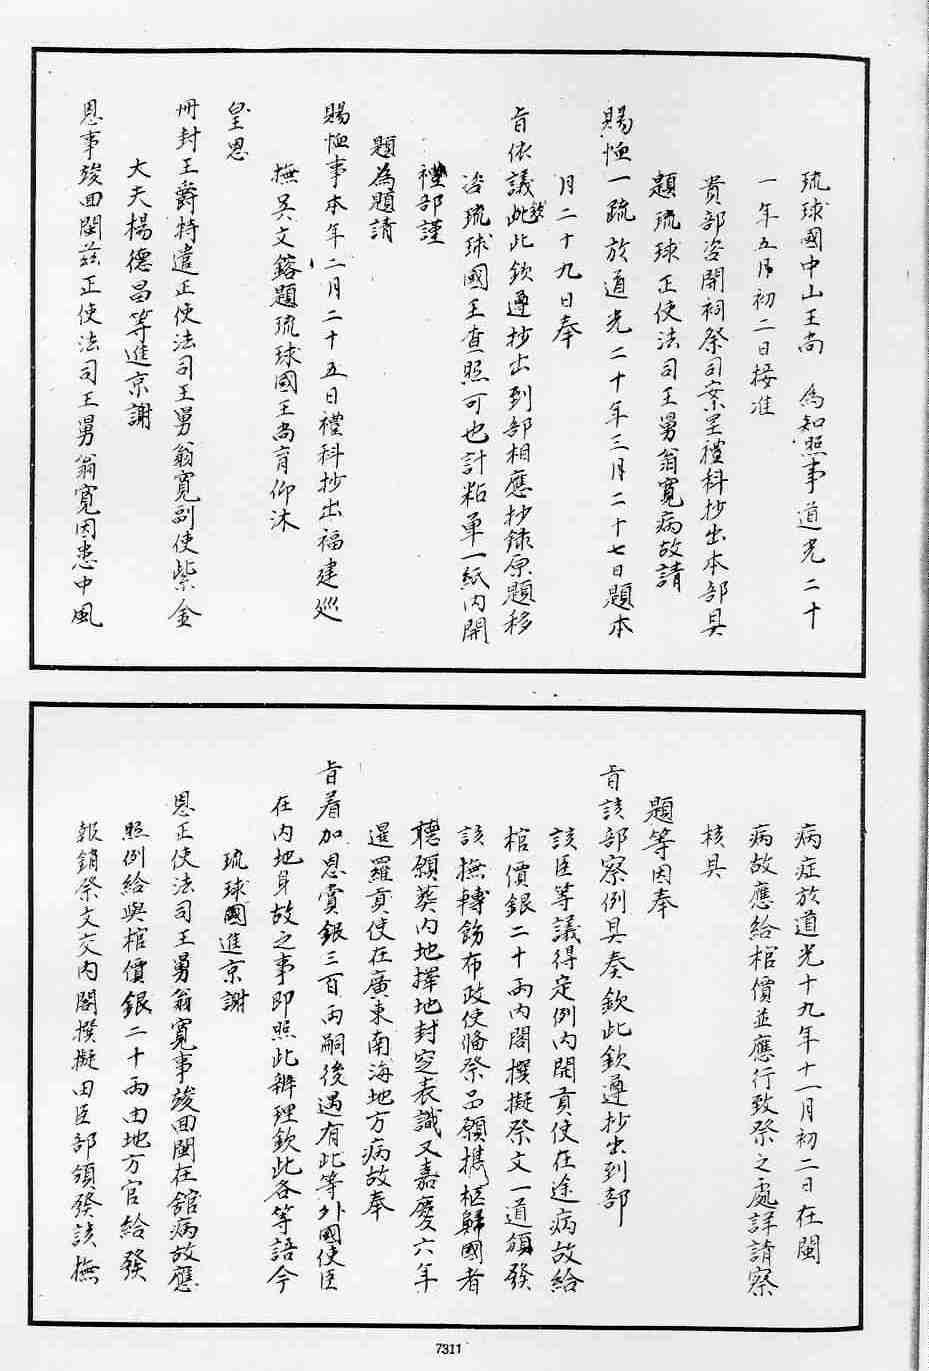 琉球國中山王尚　為知照事道光二十
一年五月初二日接准
貴部咨開祠祭司案呈禮科抄出本部具
題琉球正使法司王舅翁寬病故請
賜恤一疏於道光二十年三月二十七日題本
月二十九日奉
旨依議此欽此欽遵抄出到部相應抄錄原題移
咨琉球國王查照可也計粘單一紙內開
禮部謹
題為題請
賜恤事本年二月二十五日禮科抄出福建巡
撫吳文鎔題琉球國王尚育仰沐
皇恩
冊封王爵特遣正使法司王舅翁寬副使紫金
大夫楊德昌等進京謝
恩事竣回閩茲正使法司王舅翁寬因患中風
病症於道光十九年十一月初二日在閩
病故應給棺價並應行致祭之處詳請察
核具
題等因奉
旨該部察例具奏欽此欽遵抄出到部
該臣等議得定例內開貢使在途病故給
棺價銀二十兩內閣撰擬祭文一道頒發
該撫轉飭布政使俻祭品願携柩歸國者
聽願葬內地擇地封窆表識又嘉慶六年
暹羅貢使在廣東南海地方病故奉
旨着加恩賞銀三百兩嗣後遇有此等外國使臣
在內地身故之事即照此辨理欽此各等語今
琉球國進京謝
恩正使法司王舅翁寬事竣回閩在舘病故應
照例給與棺價銀二十兩由地方官給發
報銷祭文交內閣撰擬由臣部頒發該撫
7311